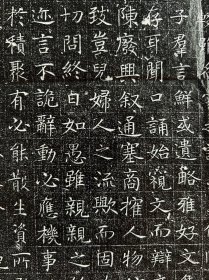 子羣言鮮或遺略雅好文
存耳聞口誦始窺文而辯
陳廢興叙通塞商搉人物
致豈兒婦人之流歟而固
切問終日如愚雖親親之
迩言不詭辭動必應機事
於積聚有必能散生資所